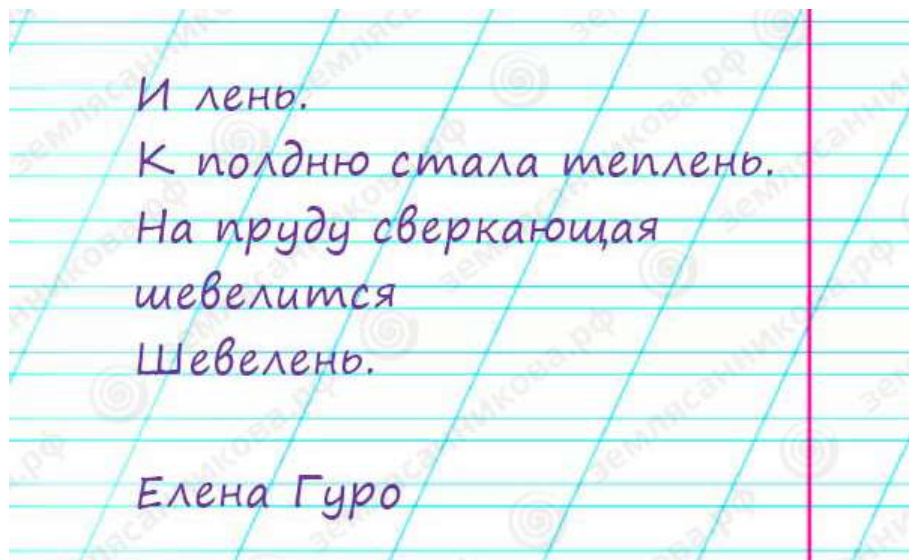 И лень.
К полдню стала теплень.
На пруду сверкающая
шевелится
Шевелень.
Елена Гуро